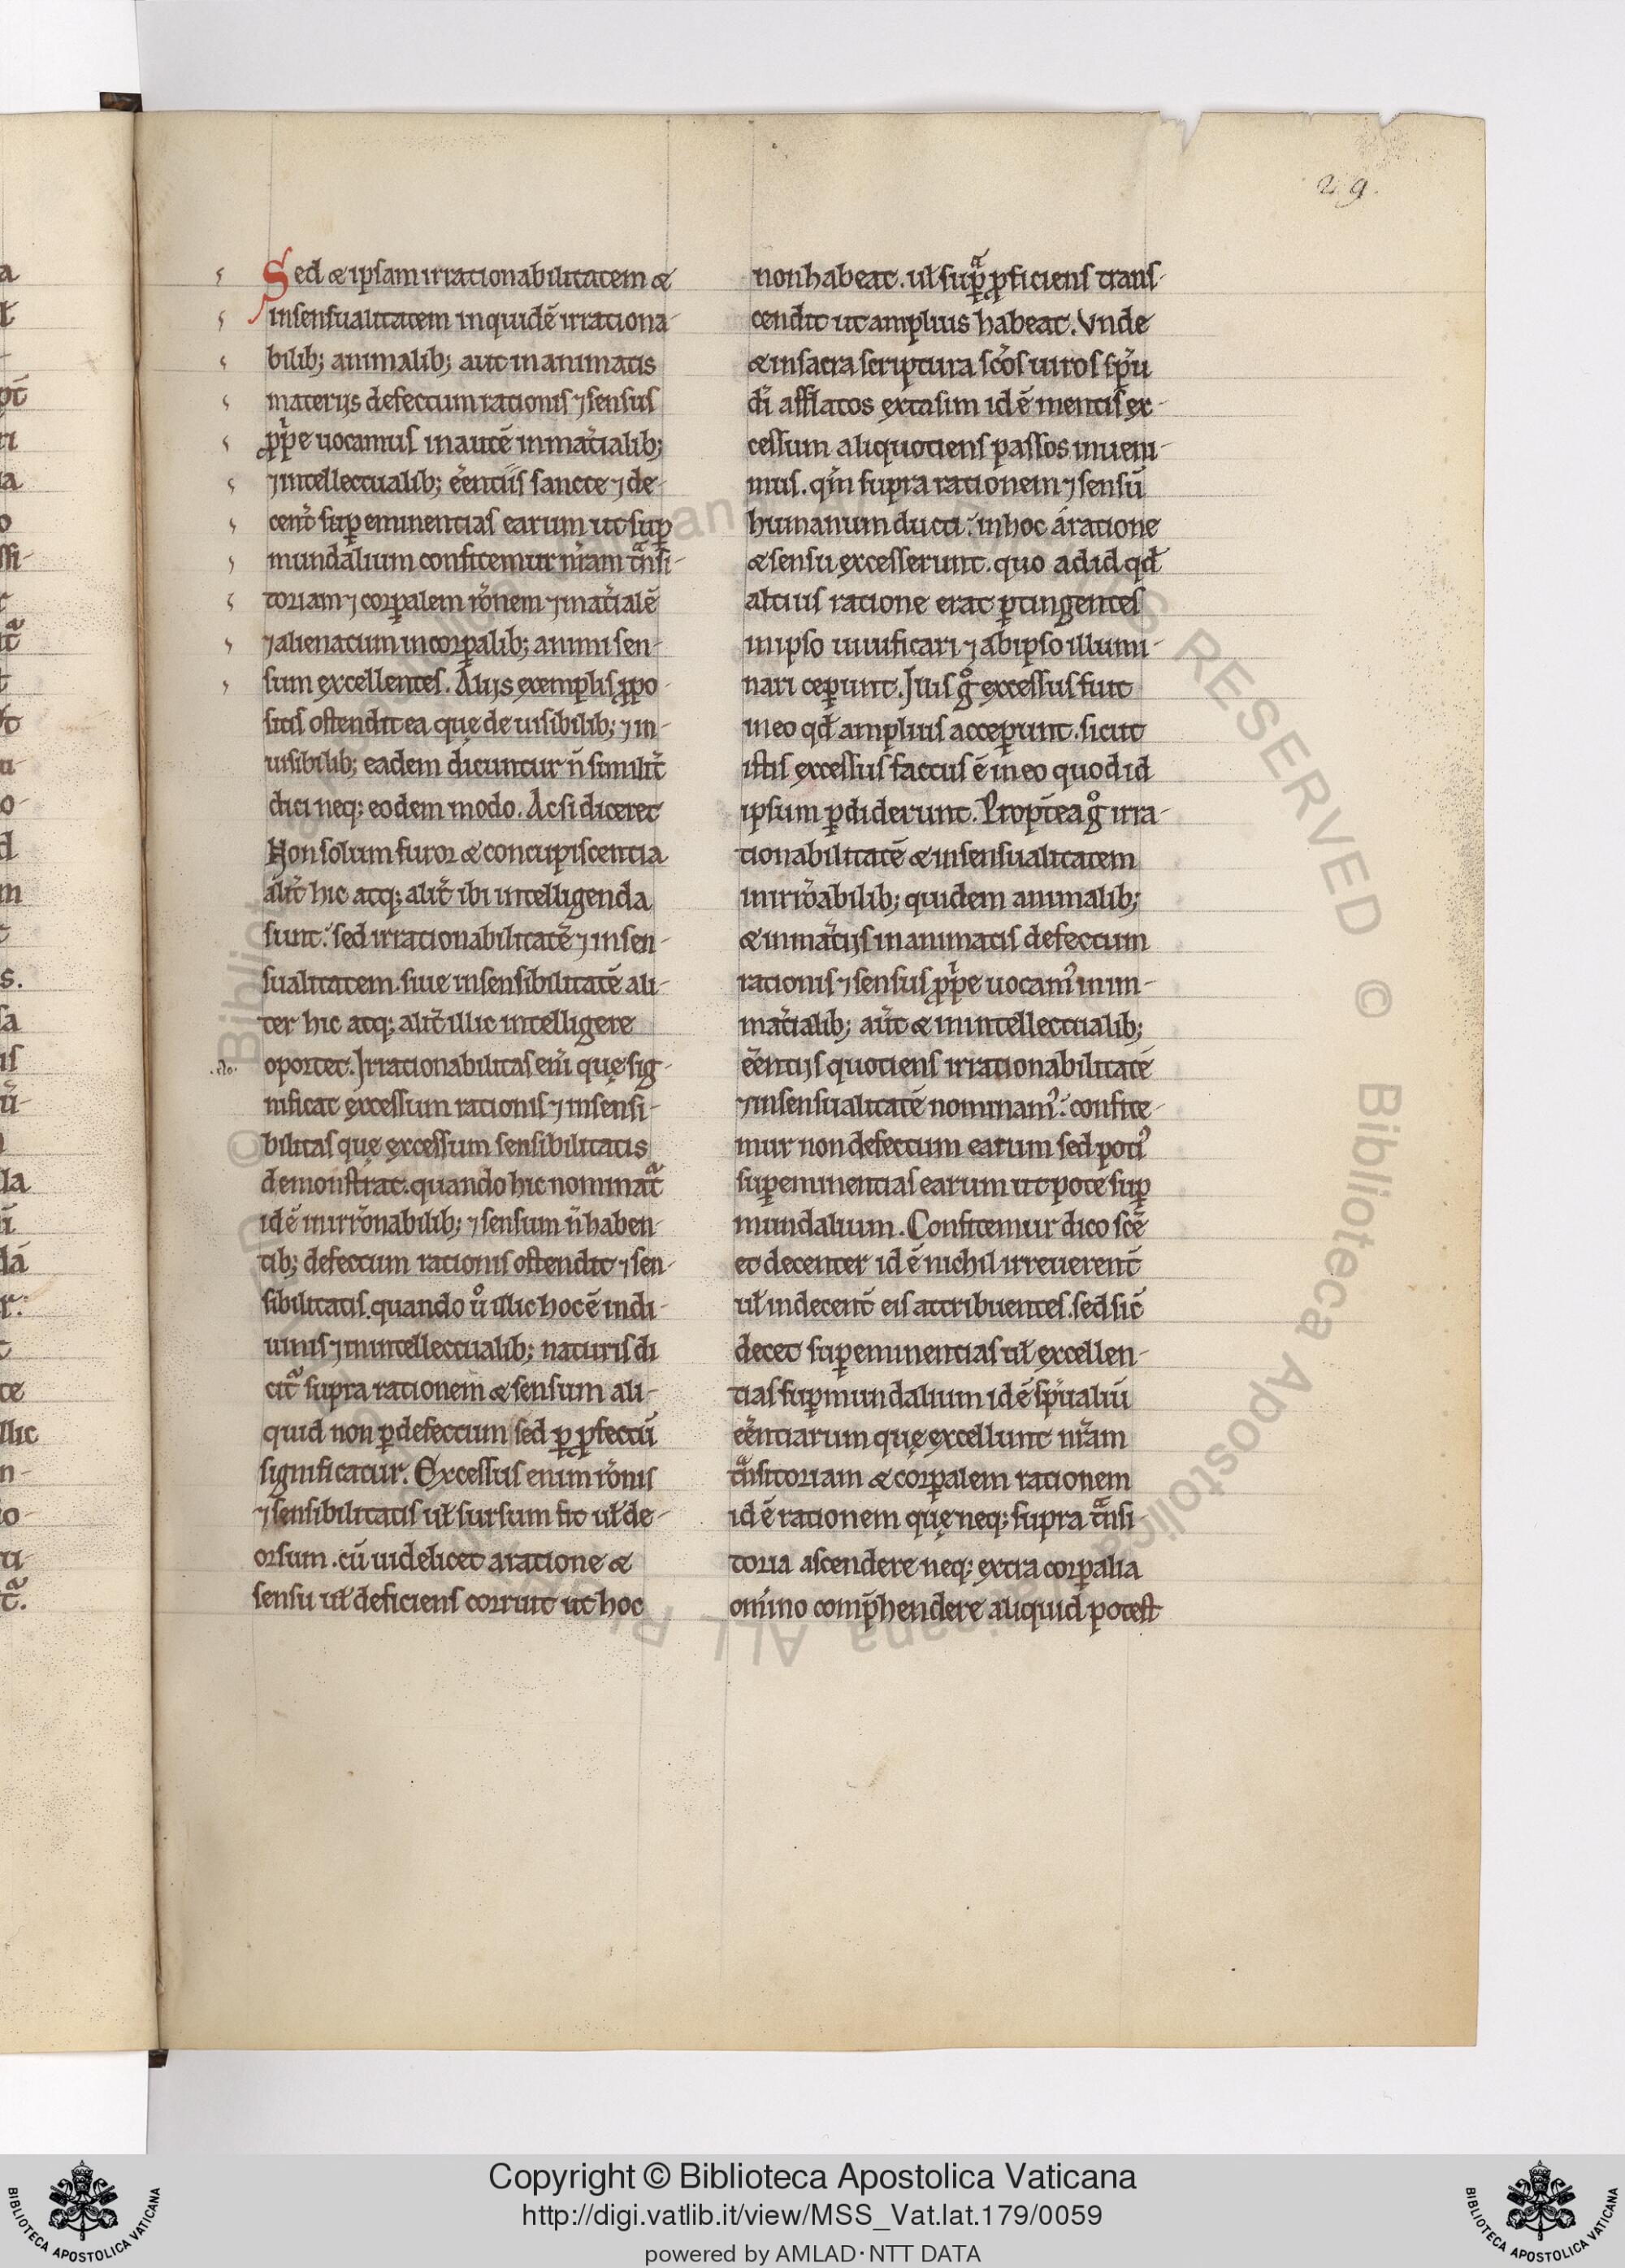 29.
Sed & ipsam irrationabilitatem &
insensualitatem inquidē irrationa-
bilib; animalib; aut inanimatis
materijs defectum rationis ⁊ sensus
ꝓpͥe uocamus in autē inmat̄ialib;
⁊ intellectualib; eēntiis sancte ⁊ de-
cent̄ suꝑeminentias earum ut suꝑ
mundalium confitemur nr̄am tͣnsi-
toriam ⁊ corꝑalem rōnem ⁊ mat̄ialē
⁊ alienatum incorꝑalib; animi sen-
sum excellentes. Alijs exemplis ꝓpo-
sitis ostendit ea quę de uisibilib; ⁊ in-
uisibilib; eadem dicuntur n̄ similit̄
dici neq; eodem modo. Ac si diceret
Non solum furor & concupiscentia
alit̄ hic atq; alit̄ ibi intelligenda
sunt: sed irrationabilitatē ⁊ insen-
sualitatem. siue insensibilitatē ali-
ter hic atq; alit̄ illic intelligere
oportet. Irrationabilitas eni quę sig-
nificat excessum rationis ⁊ insensi-
bilitas quę excessum sensibilitatis
demonstrat. quando hic nominatͣ
id ē inirrōnabilib; ⁊ sensum n̄ haben-
tib; defectum rationis ostendit ⁊ sen-
sibilitatis. quando uͦ illic hoc ē indi-
uinis ⁊ inintellectualib; naturis di
citͣ supra rationem & sensum ali-
quid non ꝑ defectum sed ꝑ ꝓfectū
significatur. Excessus enim rōnis
⁊ sensibilitatis uł sursum fit uł de-
orsum. cū uidelicet a ratione &
sensu uł deficiens corruit ut hoc
non habeat. uł supͣ ꝓficiens trans-
cendit ut amplius habeat. Vnde
& insacra scriptura scōs uiros sp̄u
dī afflatos extasim id ē mentis ex-
cessum aliquotiens passos inueni-
mus. qm̄ supra rationem ⁊ sensū
humanum ducti: inhoc a ratione
& sensu excesserunt. quo ad id qd̄
altius ratione erat ꝑtingentes
inipso uiuificari ⁊ abipso illumi-
nari ceꝑunt. Illis gͦ excessus fuit
ineo qd̄ amplius acceꝑunt. sicut
istis excessus factus ē ineo quod id
ipsum ꝑdiderunt. Propt̄ea gͦ irra-
tionabilitatē & insensualitatem
inirrōabilib; quidem animalib;
& inmat̄ijs inanimatis defectum
rationis ⁊ sensus ꝓpͥe uocamꝰ inim-
mat̄ialib; aūt & inintellectualib;
eēntijs quotiens irrationabilitatē
⁊ insensualitatē nominamꝰ: confite-
mur non defectum earum sed potiꝰ
suꝑeminentias earum ut pote suꝑ
mundalium. Confitemur dico scē
et decenter id ē nichil irreuerent̄
uł indecent̄ eis attribuentes. sed sic̄
decet suꝑeminentias uł excellen-
tias suꝑmundalium id ē sp̄ualiū
eēntiarum quę excellunt nr̄am
tͣnsitoriam & corꝑalem rationem
id ē rationem quę neq; supra tͣnsi-
toria ascendere neq; extra corꝑalia
omino comp̄hendere aliquid potest
Copyright © Biblioteca Apostolica Vaticana
http://digi.vatlib.it/view/MSS_Vat.lat.179/0059
powered by AMLAD·NTT DATA
BIBLIOTECA APOSTOLICA VATICANA
BIBLIOTECA APOSTOLICA VATICANA